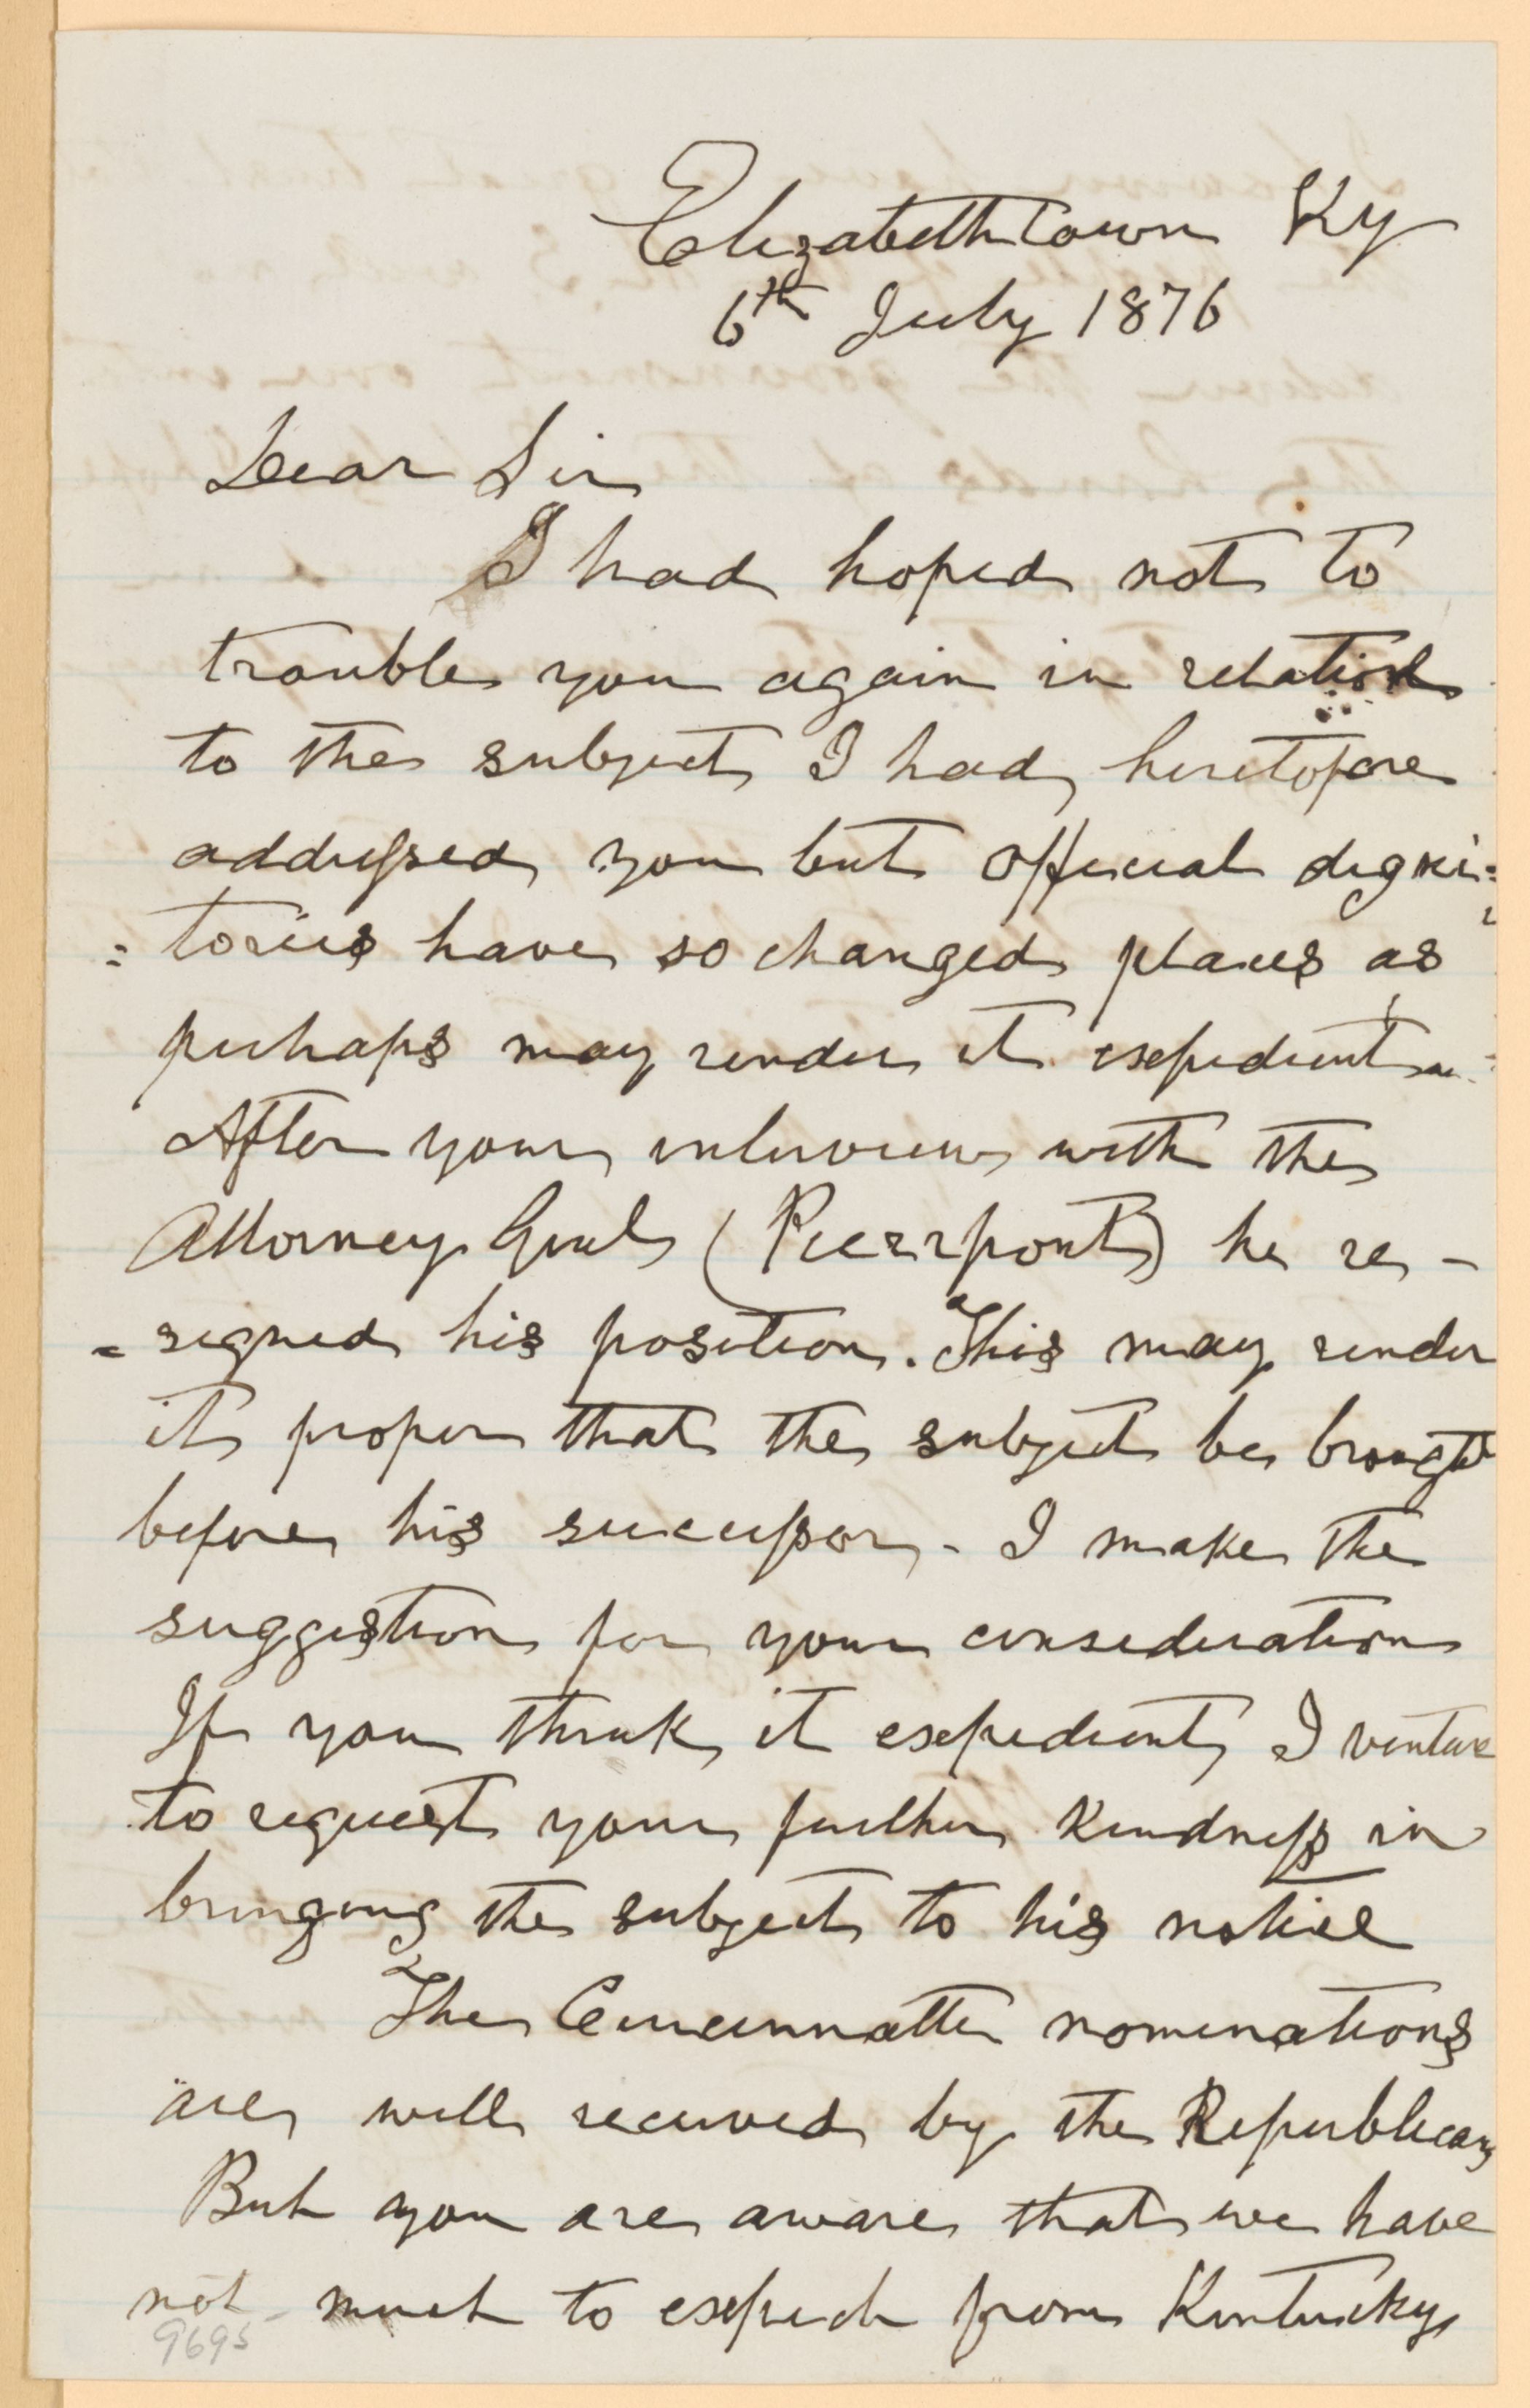 Elizabethtown Ky
6th July 1876
Dear Sir
I had hoped not to
trouble you again in relation
to the subject I had heretofore
addressed you but official digni=
=tories have so changed places as
perhaps may render it expedient
After your interview with the
Attorney Genl (Pierrpont) he re-
=signed his position. This may render
it proper that the subject be brought
before his successor - I make the
suggestion for your consideration
If you think it expedient I venture
to request your further kindness in
bringing the subject to his notice
The Cincinnatti nominations
are well received by the Republicans
But you are aware that we have
not much to expect from Kentucky
9695